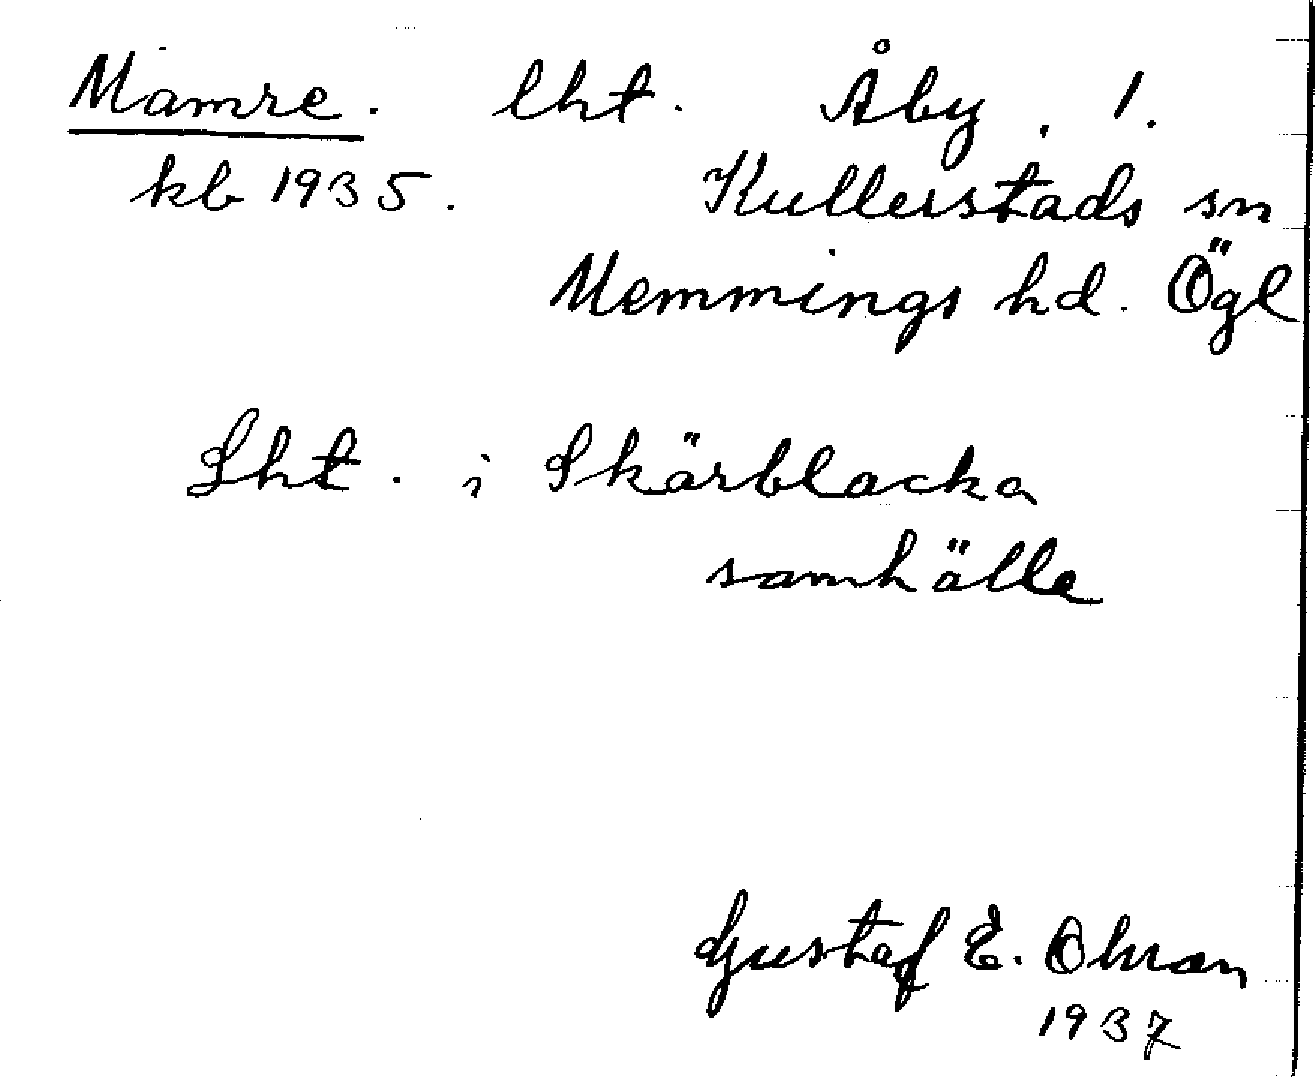 Mamre. lht. Åby. 1.
kb 1935. Kullerstads sn
Memmings hd. Ögl
Lht. i Skärblacka
samhälle
Gustaf E. Ohran
1937